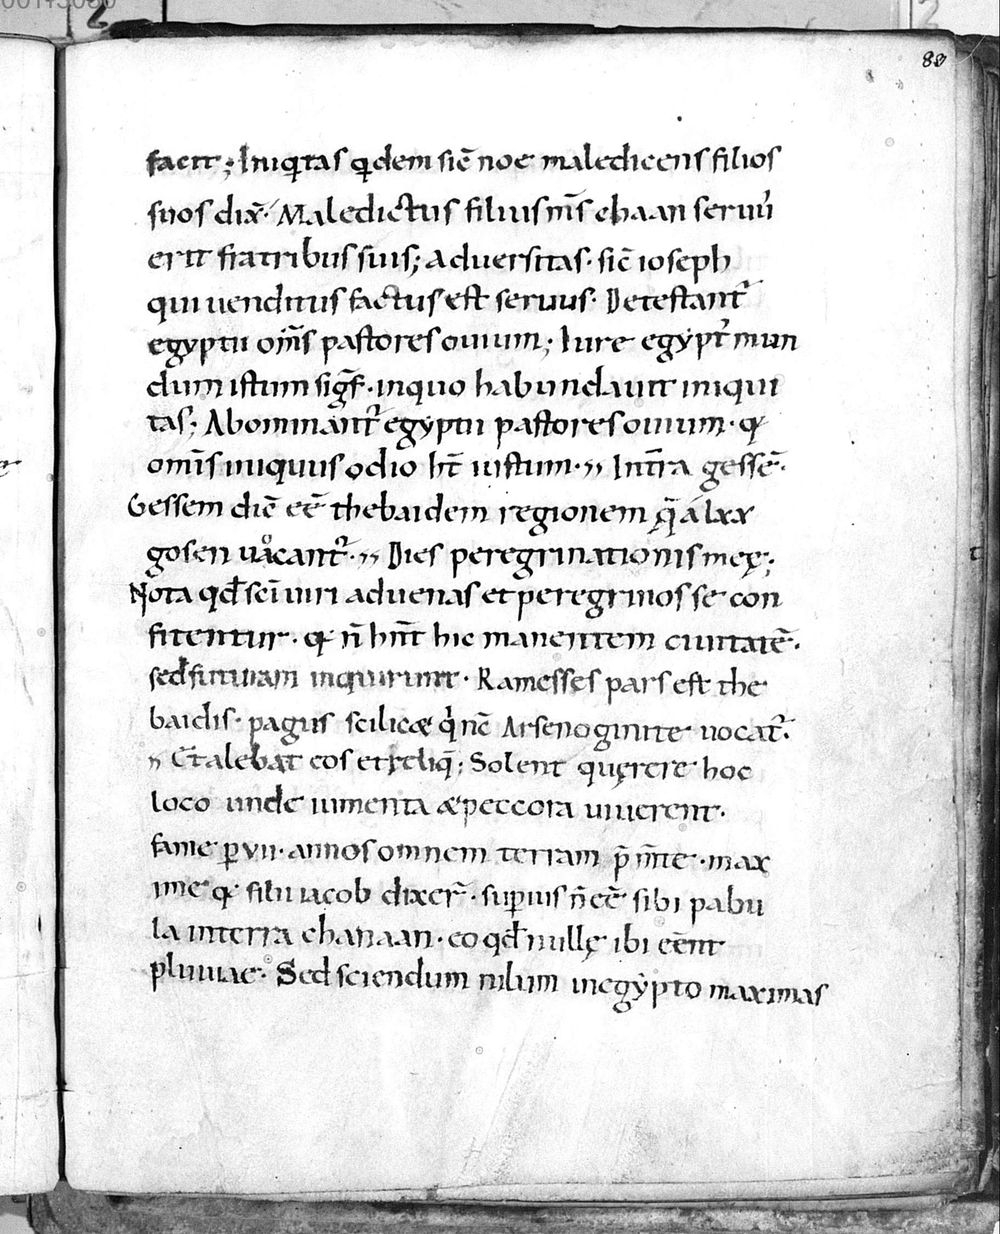 80
facit; Iniqͥtas qͥdem sic̄ noe maledicens filios
suos dix̄· Maledictus filius m̄s chaan seruꝰ
erit fratribus suis; aduersitas· sic̄ ioseph
qui uenditus factus est seruus· Detestant᷑
egyptii om̄s pastores ouium; Iure egypt᷑ mun
dum istum siḡf· inquo habundauit iniqui
tas; Abominant᷑ egyptii pastores ouium· q
om̄is iniquus odio ht̄ iustum·,, Int̄ra gessē·
Gessem dic̄ eē thebaidem regionem q̄ a lxx
gosen uocant᷑·,, Dies peregrinationis meę;
Nota qđ sc̄i uiri aduenas et peregrinos se con
fitentur· q n̄ hn̄t hic manentem ciuitatē·
sed futuram inquirunt· Ramesses pars est the
baidis· pagus scilicæ qͥ nc̄ Arsenoginite uocat᷑·
,, Et alebat eos et reliq̄; Solent quęrere hoc
loco unde iumenta æ peccora uiuerent·
fame ꝑ vii· annos omnem terram p̄m̄te· max
ime q filii iacob dixer̄· suꝑius n̄ eē sibi pabu
la interra chanaan· eo qđ nullę ibi eēnt
pluuiae· Sed sciendum nilum inegypto maximas